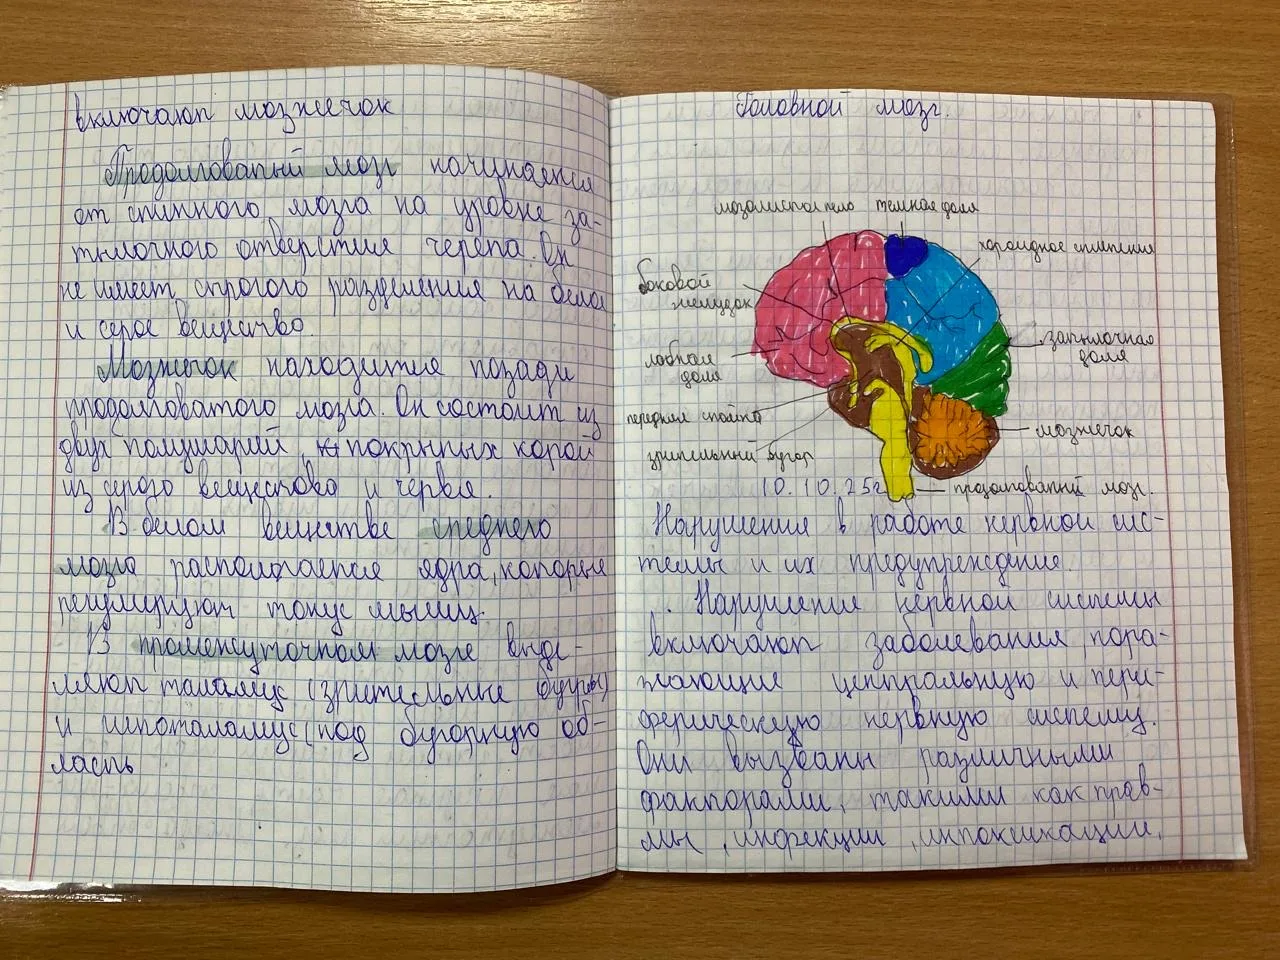 включают мозжечок
Продолговатый мозг начинается
от спинного мозга на уровне за-
тылочного отверстия черепа. Он
не имеет строгого разделения на белое
и серое вещество.
Мозжечок находится позади
продолговатого мозга. Он состоит из
двух полушарий, покрытых корой
из серого вещество и червя.
В белом веществе среднего
мозга располагается ядра, которые
регулируют тонус мышц.
В промежуточном мозге выде-
ляют таламус (зрительные бугры)
и гипоталамус (под бугорную об-
ласть
Головной мозг.
мозолистое тело темная доля
хороидное сплетение
боковой
желудок
затылочная
доля
лобная
доля
передняя спайка
мозжечок
зрительный бугор
продолговатый мозг.
10.10.25г
Нарушения в работе нервной сис-
темы и их предупреждение.
Нарушение нервной системы
включают заболевания, пора-
жающие центральную и пери-
ферическую нервную систему.
Они вызваны различными
факторами, такими как трав-
мы, инфекции, интоксикации,